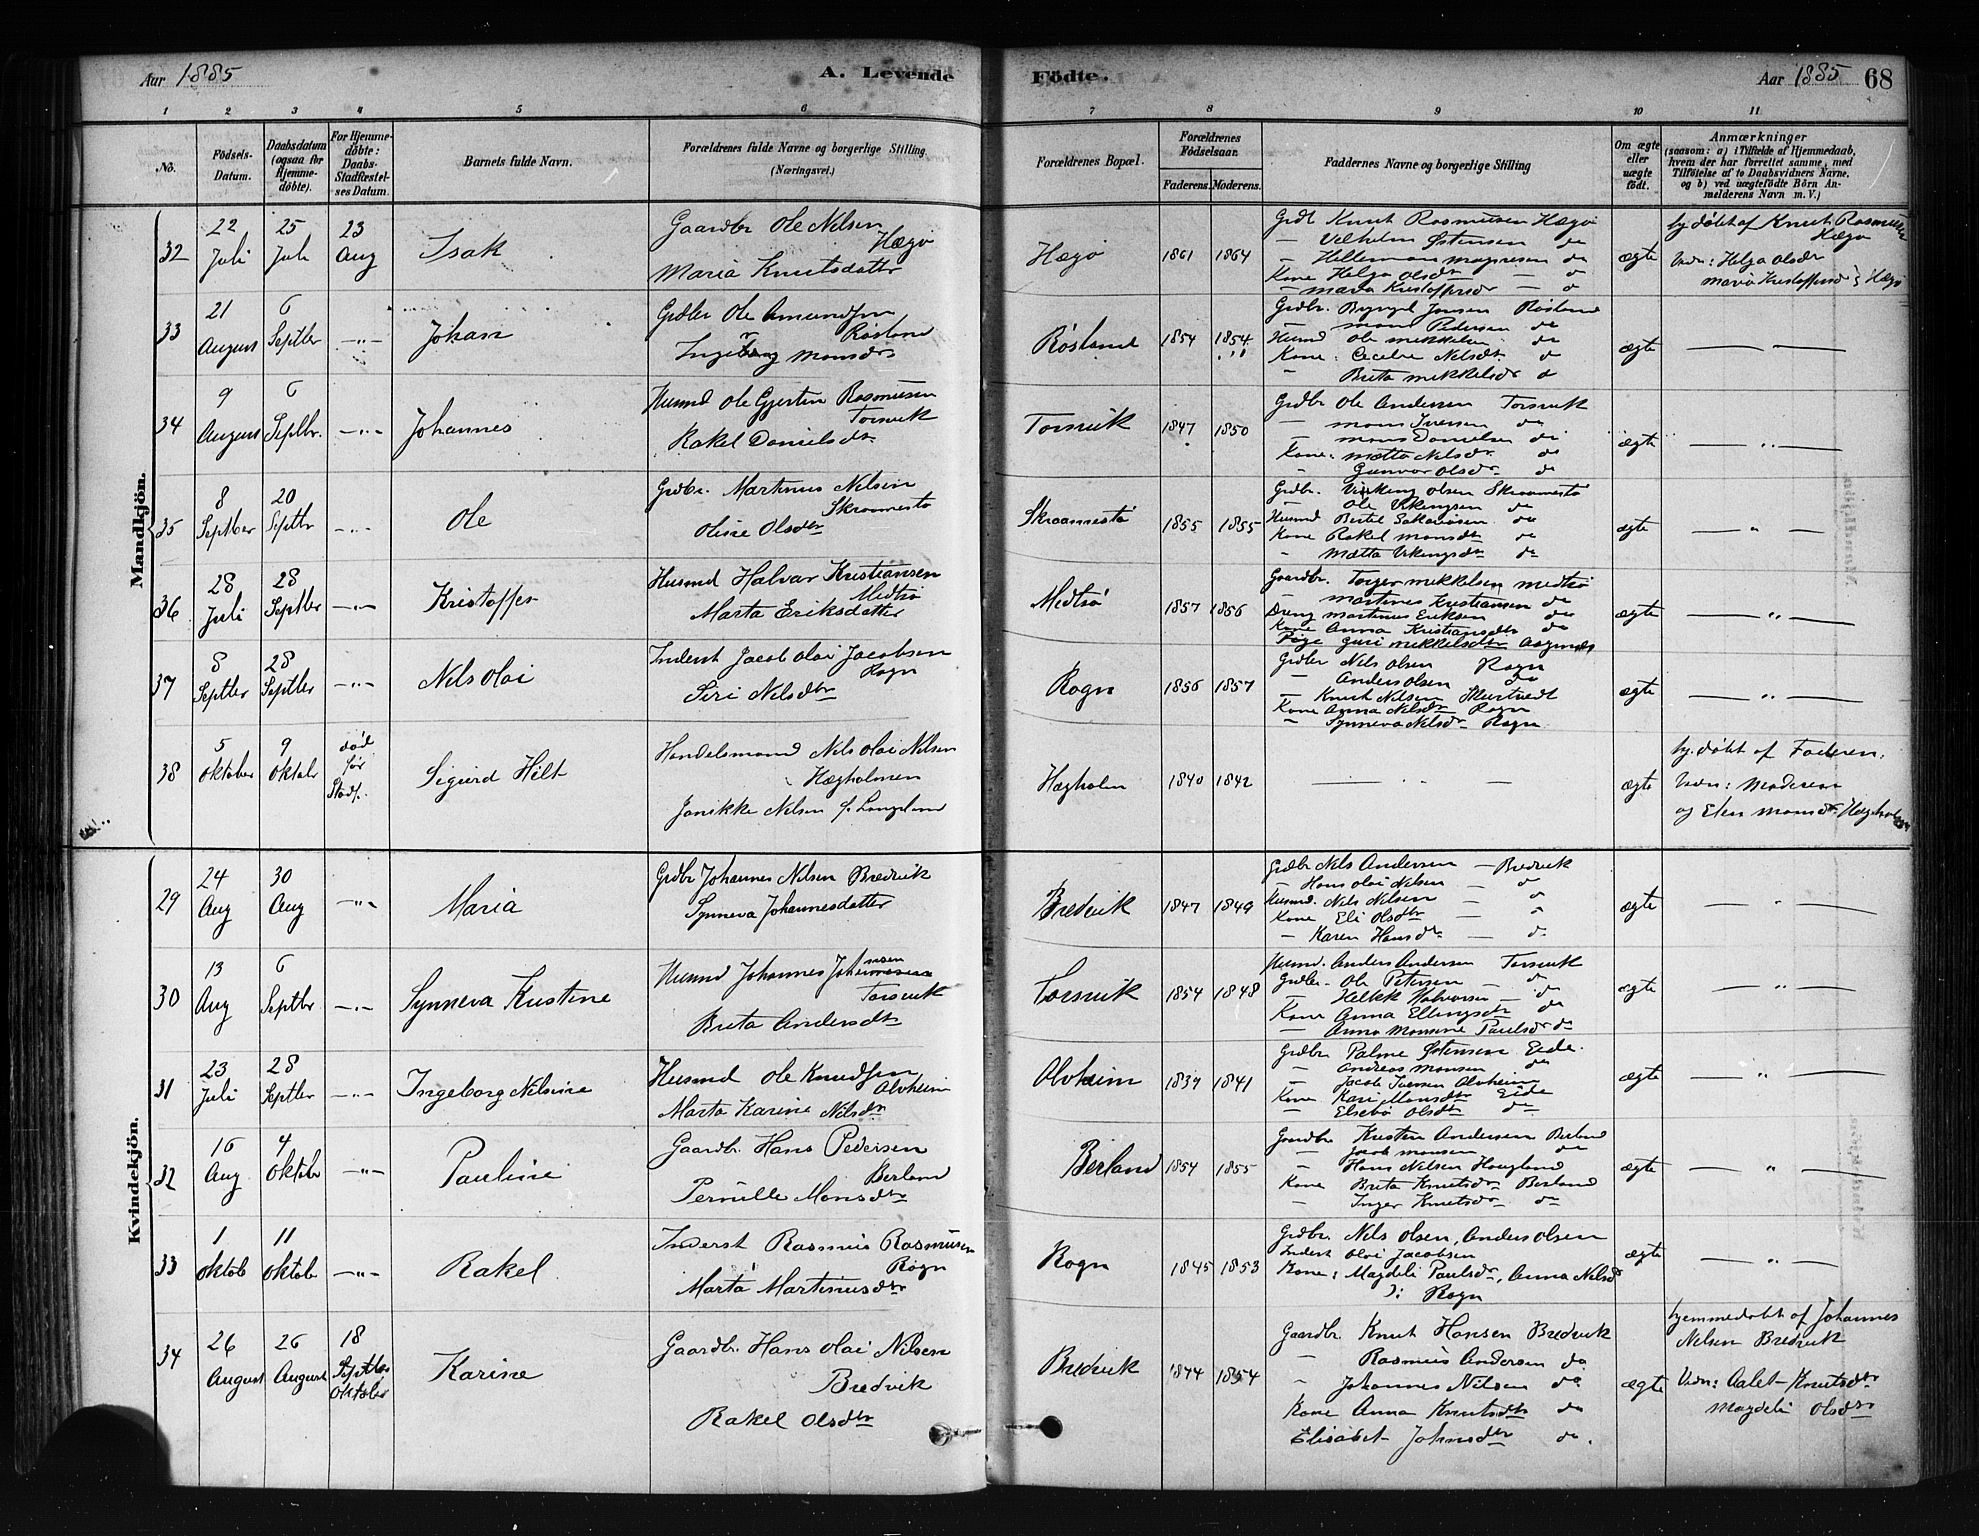 Aar 1885
A. Levende
Födte.
Aar 1885
68
1 2 3 4 5 6 7 8 9 10 11
No.
Födsels-Datum.
Daabsdatum (ogsaa for Hjemme-döbte).
For Hjemme-döbte: Daabs-Stadfæstel-ses Datum.
Barnets fulde Navn.
Forældrenes fulde Navne og borgerlige Stilling (Næringsvei.)
Forældrenes Bopæl.
Forældrenes Födselsaar.
Faderens. Moderens.
Faddernes Navne og borgerlige Stilling
Om ægte eller uægte födt.
Anmærkninger
(saasom: a) i Tilfælde af Hjemmedaab, hvem der har forrettet samme, med Tilföielse af to Daabsvidners Navne, og b) ved uægtefödte Börn An-melderens Navn m. V.)
Mandkjön.
32
22 Juli
25 Juli
23 Aug
Isak
Gaardbr Ole Nilsen
Hægö
Maria Knutsdatter
Hægö
1861 1864
Grdb Knut Rasmussen Hægö
— Vilhelm Østensen do
— Helleman Magnesen do
Kone Helga Olsdr — do
— Maria Kristoffersdr — do
ægte
hj. döbt af Knut Rasmussen
Hægö
Vidn: Helga Olsdr
Maria Kristoffersdr } Hægö
33
21 August
6 Septbr
—"—
Johan
Grdbr Ole Amundsen
Rösland
Ingeborg Monsdr
Rösland
1854 1854
Mons Pedersen do
Husmd Ole Mikkelsen do
Kone: Cecelie Nilsdr do
— Brita Mikkelsdr do
ægte
— " —
34
9 August
6 Septbr.
—"—
Johannes
Husmd Ole Gjertin Rasmusen
Torsvik
Rakel Danielsdr
Torsvik
1847 1850
Grdbr Ole Andersen Torsvik
— Mons Iversen do
— Mons Danielsen do
Kone: Mætta Nilsdr do
— Gunvor Olsdr do
ægte
— " —
35
8 Septber
20 Septbr
—"—
Ole
Grdbr. Martinus Nilsen
Skraamestö
Oline Olsdtr
Skraamestö
1855 1855
Grdbr. Viking Olsen Skraamestö
— Ole Vikingsen do
Husmd Bertel Sakariasen do
Kone Rakel Monsdtr do
— Mætta Vikingsdr do
ægte
— " —
36
28 Juli
28 Septber
—"—
Kristoffer
Husmd Halvar Kristiansen
Medtsö
Marta Eriksdatter
Medtsö
1857 1856
Gaardbr. Torger Mikkelsen Medtsö
— Martines Kristiansen do
Dreng Martinus Eriksen do
Kone Anna Kristiansdtr do
Pige Guri Mikkelsdtr
ægte
— " —
37
8 Septber
28 Septber
—"—
Nils Olai
Inderst Jacob Olai Jacobsen
Rogn
Siri Nilsdtr
Rogn
1856 1857
Grdbr Nils Olsen Rogn
— Anders Olsen do
— Knut Nilsen
Kone Anna Nilsdr Rogn
— Synneva Nilsdr Rogn
ægte
— " —
38
5 Oktober
9 Oktobr
död för Stadf.
Sigurd Hilt
Handelsmand Nils Olai Nilsen
Hægholmen
Janikke Nilsen f. Langeland
Hægholm
1840 1842
— " —
ægte
hj. döbt af Faderen.
Vidn: Moderen
og Elen Monsdr Hægholmen
Kvindekjön.
29
24 Aug
30 Aug
—"—
Maria
Grdbr Johannes Nilsen Bredvik
Synneva Johannesdatter
Bredvik
1847 1849
Grdbr Nils Andersen — Bredvik
— Hans Olai Nilsen — do
Husmd. Nils Nilsen — do
Kone Eli Olsdtr — do
— Karen Hansdr — do
ægte
— " —
30
13 Aug
6 Septbr
—"—
Synneva Kristine
Torsvik
Brita Andersdtr
Torsvik
1854 1848
Husmd. Anders Andersen Torsvik
Grdbr. Ole Petersen — do
— Halvorsen — do
Kone Anna Ellingsdtr do
— Anna Monsine Paulsdr do
ægte
— " —
31
23 Juli
28 Septber
—"—
Ingeborg Nilsine
Husmd Ole Knudsen
Alvheim
Marta Karine Nilsdr
Alvheim
1839 1841
Grdbr. Palme Østensen Eide.
— Andreas Monsen do
— Jacob Iversen Alvheim
Kone Kari Monsdtr Eide
— Elsebö Olsdtr do
ægte
— " —
32
16 Aug
4 Oktober
—"—
Pauline
Gaardbr. Hans Pedersen
Berland
Pernille Monsdtr
Berland
1854 1855
Gaardbr. Kristen Andersen Berland
— Jacob Monsen do
— Hans Nilsen Haugland
Kone Brita Knutsdr Berland
— Inger Knutsdr do
ægte
— " —
33
1 Oktob
11 Oktob
—"—
Rakel
Inderst Rasmus Rasmusen
Rogn
Marta Martinusdtr
Rogn
1845 1853
Grdbr. Nils Olsen, Anders Olsen
Inderst Olai Jacobsen
Kone: Magdeli Paulsdr, Anna Nilsdr
): Rogn
ægte
— " —
34
26 August
26 August
18 Septbr Oktober
Karine
Gaardbr. Hans Olai Nilsen
Bredvik
Rakel Olsdtr
Bredvik
1844 1854
Gaardbr. Knut Hansen Bredvik
" Rasmus Andersen do
" Johannes Nilsen do
Kone Anna Knutsdtr do
Elisabet Johnsdtr do.
ægte
hjemmedöbt af Johannes
Nilsen Bredvik
Vidn: Aalet Knutsdtr
Magdeli Olsdtr